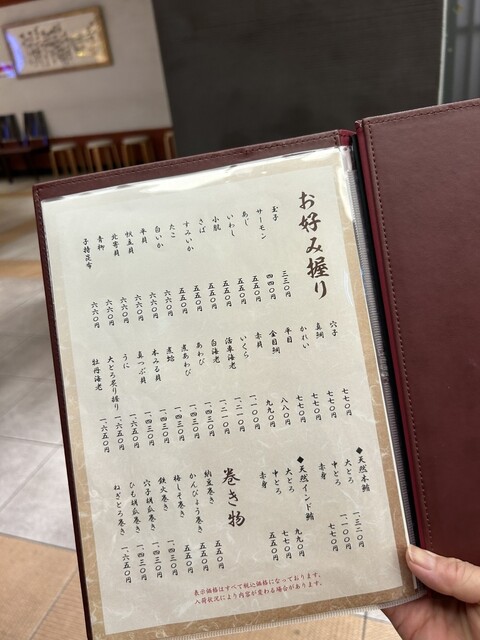 お好み握り
玉子 三三〇円
サーモン 四四〇円
あじ 五五〇円
いわし 五五〇円
小肌 五五〇円
さば 五五〇円
すみいか 五五〇円
たこ 六六〇円
白いか 六六〇円
平貝 六六〇円
帆立貝 六六〇円
北寄貝 六六〇円
青柳 六六〇円
子持昆布 六六〇円
穴子 七七〇円
真鯛 七七〇円
かれい 七七〇円
平目 八八〇円
金目鯛 九九〇円
赤貝 一、一〇〇円
いくら 一、一〇〇円
活車海老 一、二一〇円
白海老 一、二一〇円
あわび 一、四三〇円
煮あわび 一、四三〇円
煮蛤 一、四三〇円
本みる貝 一、四三〇円
真つぶ貝 一、四三〇円
うに 一、六五〇円
大とろ炙り握り 一、六五〇円
牡丹海老 一、六五〇円
◆天然本鮪
大とろ 一、三二〇円
中とろ 一、一〇〇円
赤身 七七〇円
◆天然インド鮪
大とろ 九九〇円
中とろ 七七〇円
赤身 五五〇円
巻き物
納豆巻き 五五〇円
かんぴょう巻き 五五〇円
梅しそ巻き 五五〇円
鉄火巻き 一、四三〇円
穴子胡瓜巻き 一、四三〇円
ひも胡瓜巻き 一、四三〇円
ねぎとろ巻き 一、六五〇円
表示価格はすべて税込価格になっております。
入荷状況により内容が変わる場合があります。